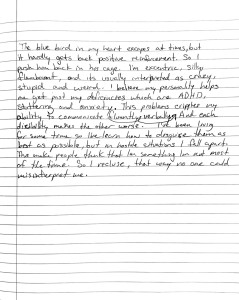 The blue bird in my heart escapes at times, but
it hardly gets back positive reinforcement. So I
push him back in his cage. I'm eccentric, silly
flamboyant, and its usually interpreted as crazy,
stupid and weird. I believe my personality helps
me get past my delicacies which are ADHD,
stuttering and anxiety. This problems cripple my
ability to communicate fluently verbally. And each
disability makes the other worse. I've been living
for some time so Ive learn how to disguise them as
best as possible, but in hostile situations I fall apart.
This make people think that Im something Im not most
of the time. So I recluse, that way no one could
misinterpret me.